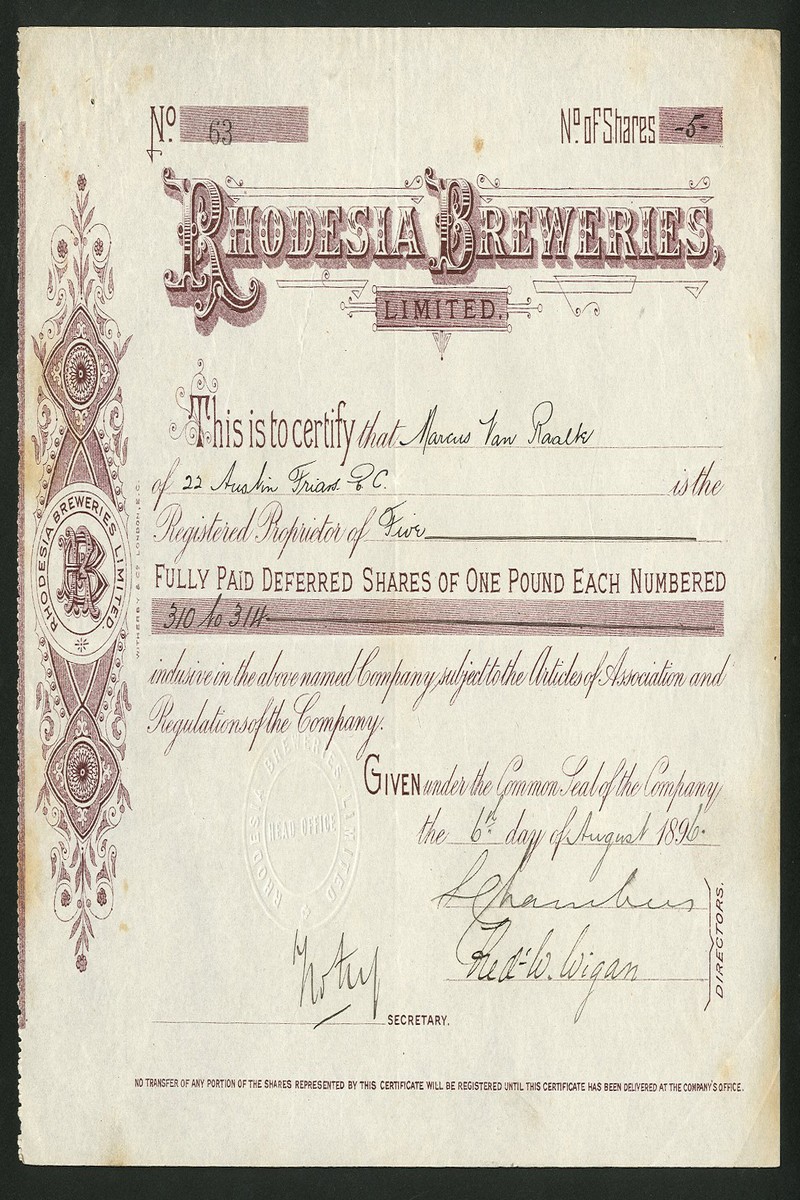 No. 63
No. of Shares -5-
RHODESIA BREWERIES,
LIMITED.
This is to certify that Marcus Van Raalte
of 22 Austin Friars E.C. is the
Registered Proprietor of Five
FULLY PAID DEFERRED SHARES OF ONE POUND EACH NUMBERED
310 to 314
inclusive in the above named Company subject to the Articles of Association and
Regulations of the Company.
GIVEN under the Common Seal of the Company
the 6th day of August 1896.
S Chambers
Fred. W. Wigan
DIRECTORS.
SECRETARY.
NO TRANSFER OF ANY PORTION OF THE SHARES REPRESENTED BY THIS CERTIFICATE WILL BE REGISTERED UNTIL THIS CERTIFICATE HAS BEEN DELIVERED AT THE COMPANY'S OFFICE.
RHODESIA BREWERIES LIMITED
RB
WITHERBY & CO LONDON, E.C.
RHODESIA BREWERIES LIMITED
HEAD OFFICE